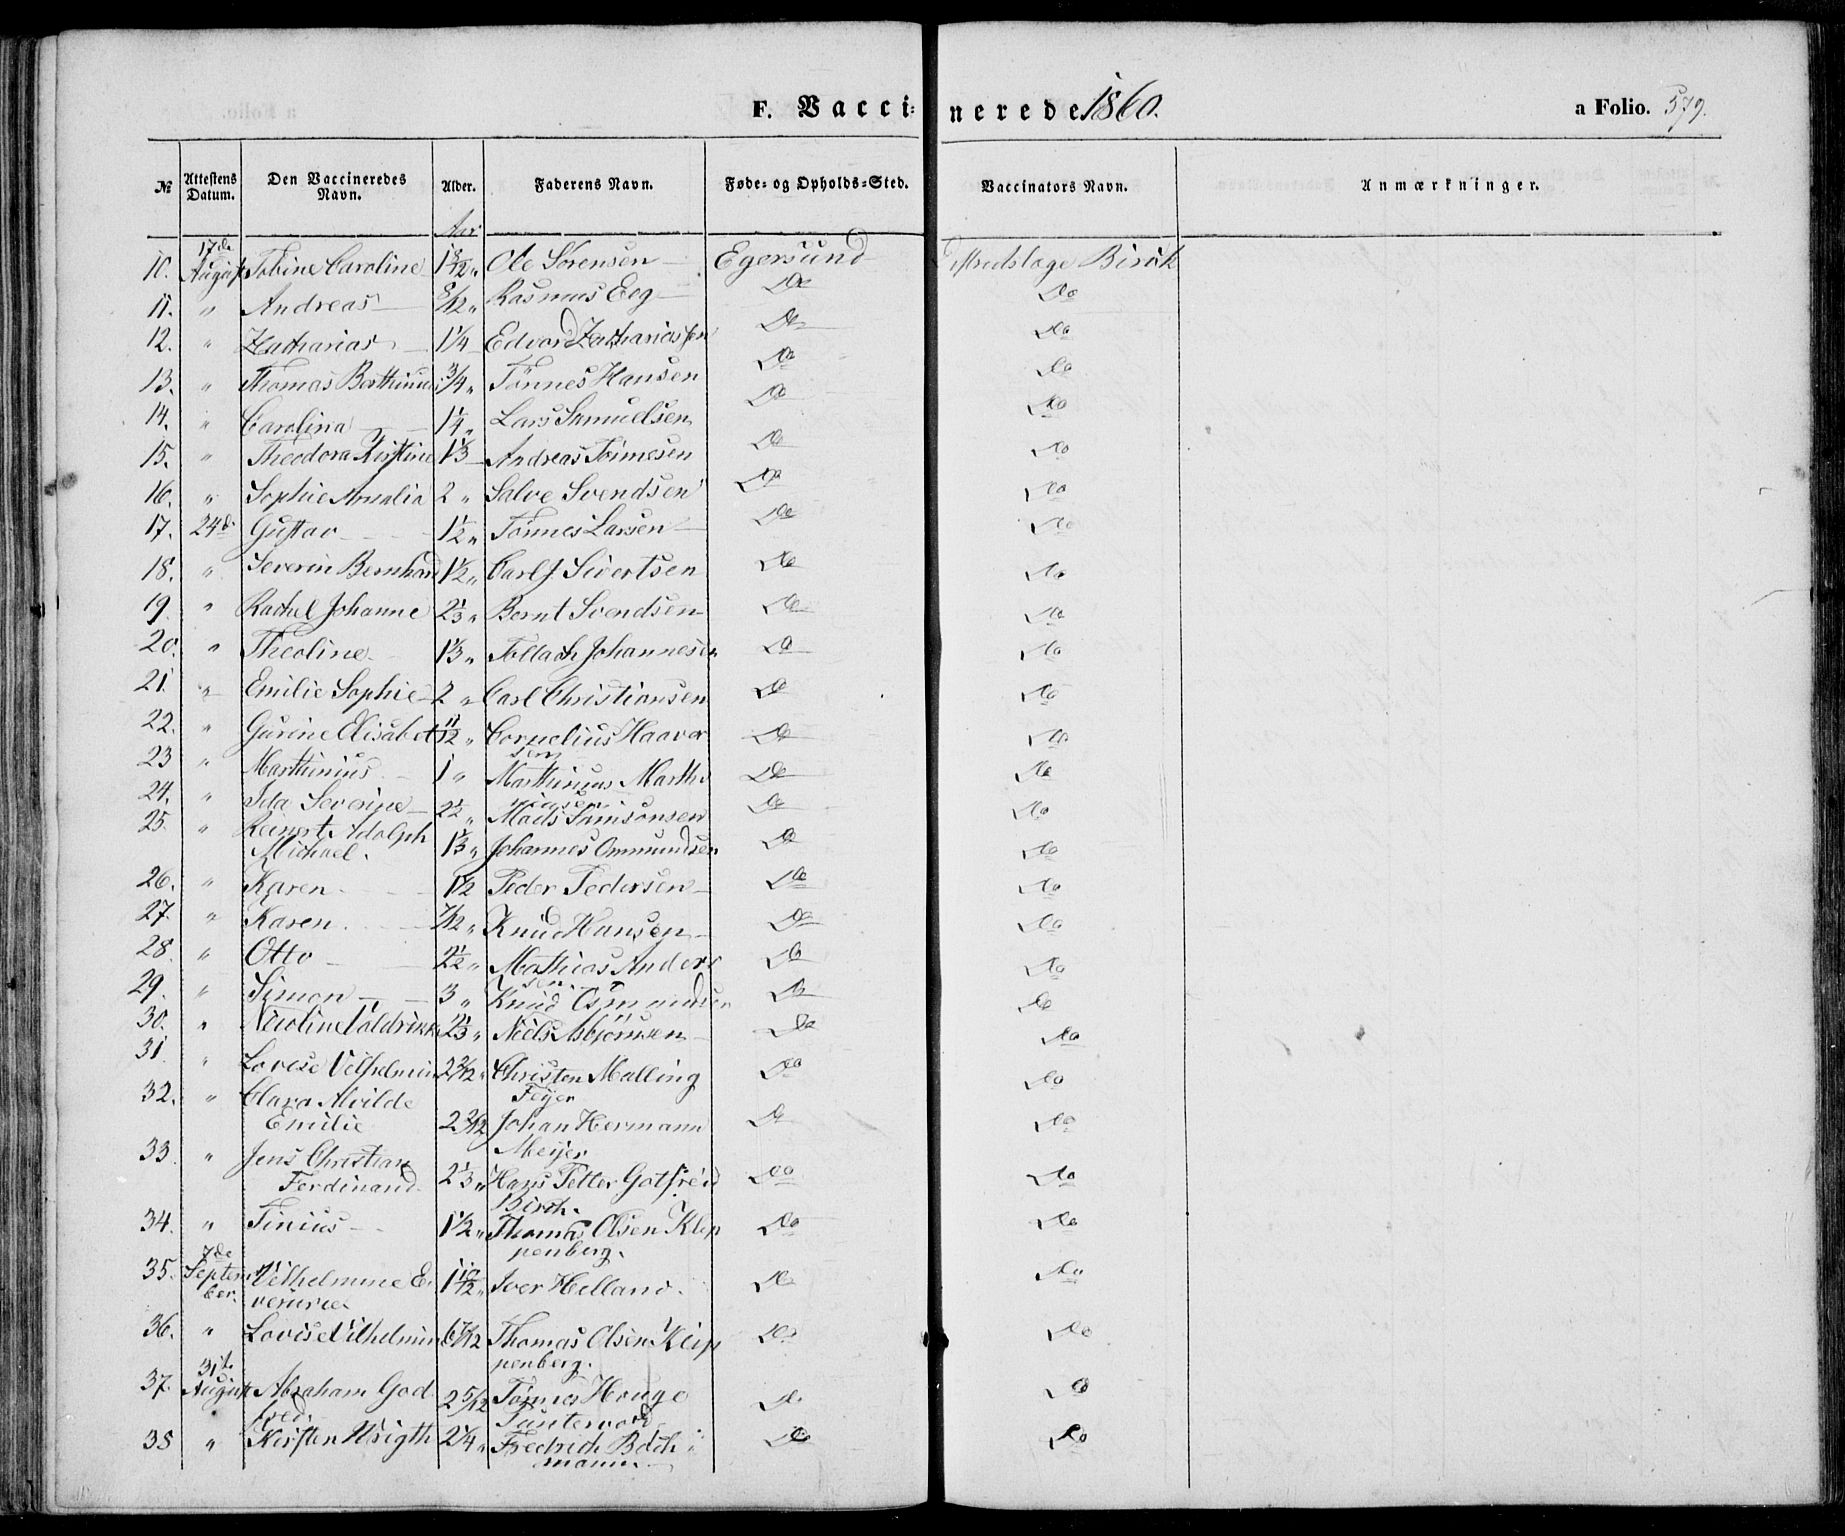 F. Vaccinerede 1860. a Folio. 579.
№ Attestens Datum. Den Vaccineredes Navn. Alder. Faderens Navn. Føde- og Opholds-Sted. Vaccinators Navn. Anmærkninger.
Aar
10. 17de August Tobine Caroline 1 8/12 " Ole Sørensen Egersund Distredslæge Birck
11. " Andreas 8/12 " Rasmus Eeg Do Do
12. " Zacharias 1 1/4 Edvard Zachariassen Do Do
13. " Thomas Berthinius 3/4 " Tönnes Hansen Do Do
14. " Carolina 1 1/4 " Lars Samuelsen Do Do
15. " Theodora Kirstine 1 1/3 Andreas Tönnesen Do Do
16. " Sophie Amalia 2 " Salve Svendsen Do Do
17. 24de Gustav 1 1/2 " Tönnes Larsen Do Do
18. " Severin Bernhard 1 1/2 " Carl J. Sivertsen Do Do
19. " Rachel Johanne 2 1/3 " Bernt Svendsen Do Do
20. " Theoline 1 1/3 " Tollach Johannesen Do Do
21. " Emilie Sophie 2 " Carl Christiansen Do Do
22. " Gurine Elisabet 11/12 " Cornelius Haavor
sen Do Do
23 " Marthinius 1 " Marthinius Marthi
niasen Do Do
24. " Ida Severine 2 1/2 " Mads Samsonsen Do Do
25. " Reinert Adolph
Michael. 1 1/3 " Johannes Ommundsen Do Do
26. " Karen 1 1/2 Peder Pedersen Do Do
27. " Karen 7/12 " Knud Hansen Do Do
28. " Otto 2 1/2 " Mathias Anders
sen Do Do
29. " Simon 3 " Knud Osmundsen Do Do
30. " Nicoline Valdrikke 2 1/3 " Niels Asbjörnsen Do Do
31. " Lovise Vilhelmin 2 2/12 " Christen Malling
Feyer Do Do
32. " Clara Alvilde
Emilie 2 2/12 Johan Hermann
Meijer Do Do
33. " Jens Christian
Ferdinand 2 1/3 " Hans Petter Gotfreid
Birch. Do Do
34. " Tinius 1 1/2 " Thomas Olsen Klep
penberg. Do Do
35. 7de September. Vilhelmine E.
1 10/12 " Iver Helland. Do Do
36. " Lovise Vilhelmin 6 7/12 Thomas Olsen Klep
penberg. Do Do
37. 31te August Abraham God
fred. 2 5/12 Tönnes Houge
Puntervold Do Do
38 " Kirsten Wrigth 2 1/4 " Fredrich Boch
mann Do Do